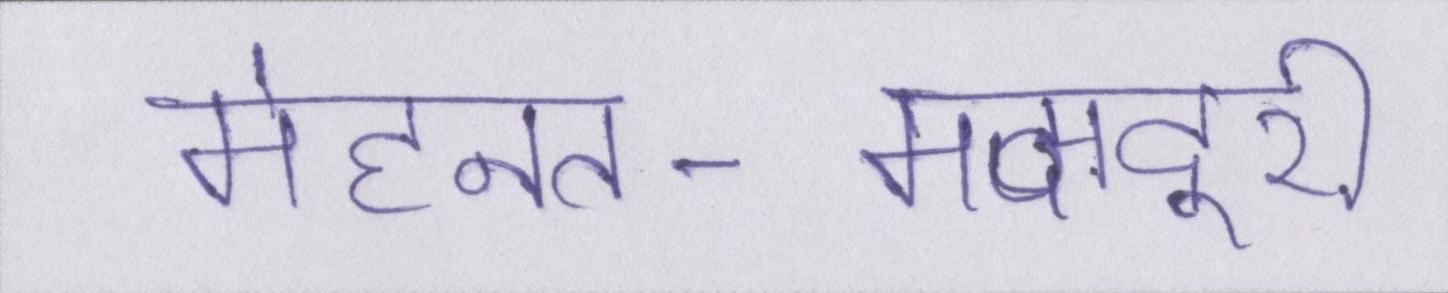 मेहनत - मजदूरी